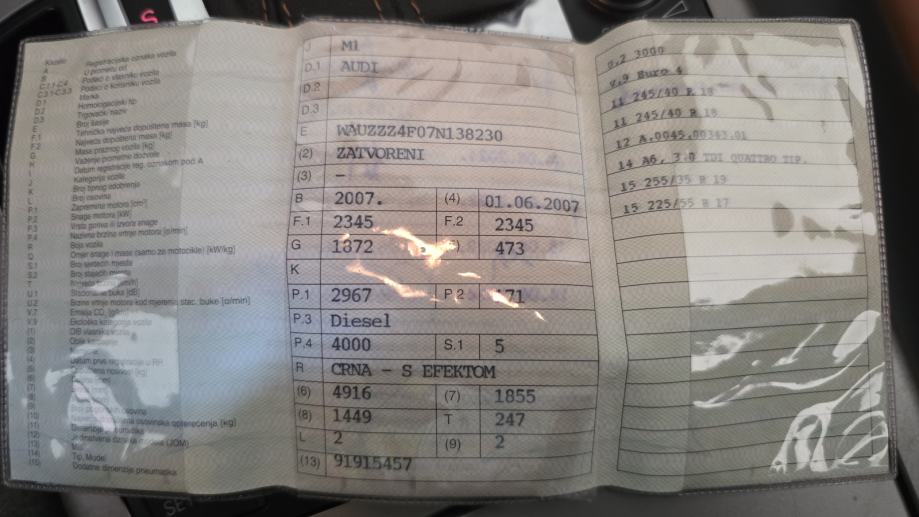 A Registracijska oznaka vozila
B U prometu od
C.1.1-C.4 Podaci o vlasniku vozila
C3.1-C3.3 Podaci o korisniku vozila
D.1 Marka
D.2 Homologacijski tip
D.3 Trgovački naziv
E Broj šasije
F.1 Tehnički najveća dopuštena masa [kg]
F.2 Najveća dopuštena masa [kg]
G Masa praznog vozila [kg]
H Važenje prometne dozvole
I Datum registracije reg. oznakom pod A
J Kategorija vozila
K Broj tipnog odobrenja
L Broj osovina
P.1 Zapremina motora [cm³]
P.2 Snaga motora [kW]
P.3 Vrsta goriva ili izvora snage
P.4 Nazivna brzina vrtnje motora [o/min]
R Boja vozila
Q Omjer snage i mase (samo za motocikle) [kW/kg]
S.1 Broj sjedećih mjesta
S.2 Broj stajaćih mjesta
T
U.1 buke [dB]
U.2 Brzina vrtnje motora kod mjerenja stac. buke [o/min]
V.7 Emisija CO₂
V.9 Ekološka kategorija vozila
(1) OIB vlasnika vozila
(2) Oblik
(3)
(4) Datum prve registracije u RH
(5) nosivost [kg]
(6)
(7)
(8)
(9) Broj osovina
(10) osovinska opterećenja [kg]
(11) pneumatika
(12) Jedinstvena oznaka modela (JOM)
(13)
(14) Tip, Model
(15) Dodatne dimenzije pneumatika
J M1
D.1 AUDI
D.2
D.3
E WAUZZZ4F07N138230
(2) ZATVORENI
(3) –
B 2007. (4) 01.06.2007
F.1 2345 F.2 2345
G 1872 473
K
P.1 2967 P.2 171
P.3 Diesel
P.4 4000 S.1 5
R CRNA - S EFEKTOM
(6) 4916 (7) 1855
(8) 1449 T 247
L 2 (9) 2
(13) 91915457
U.2 3000
V.9 Euro 4
11 245/40 R 18
11 245/40 R 18
12 A.0045.00343.01
14 A6, 3.0 TDI QUATTRO TIP.
15 255/35 R 19
15 225/55 R 17